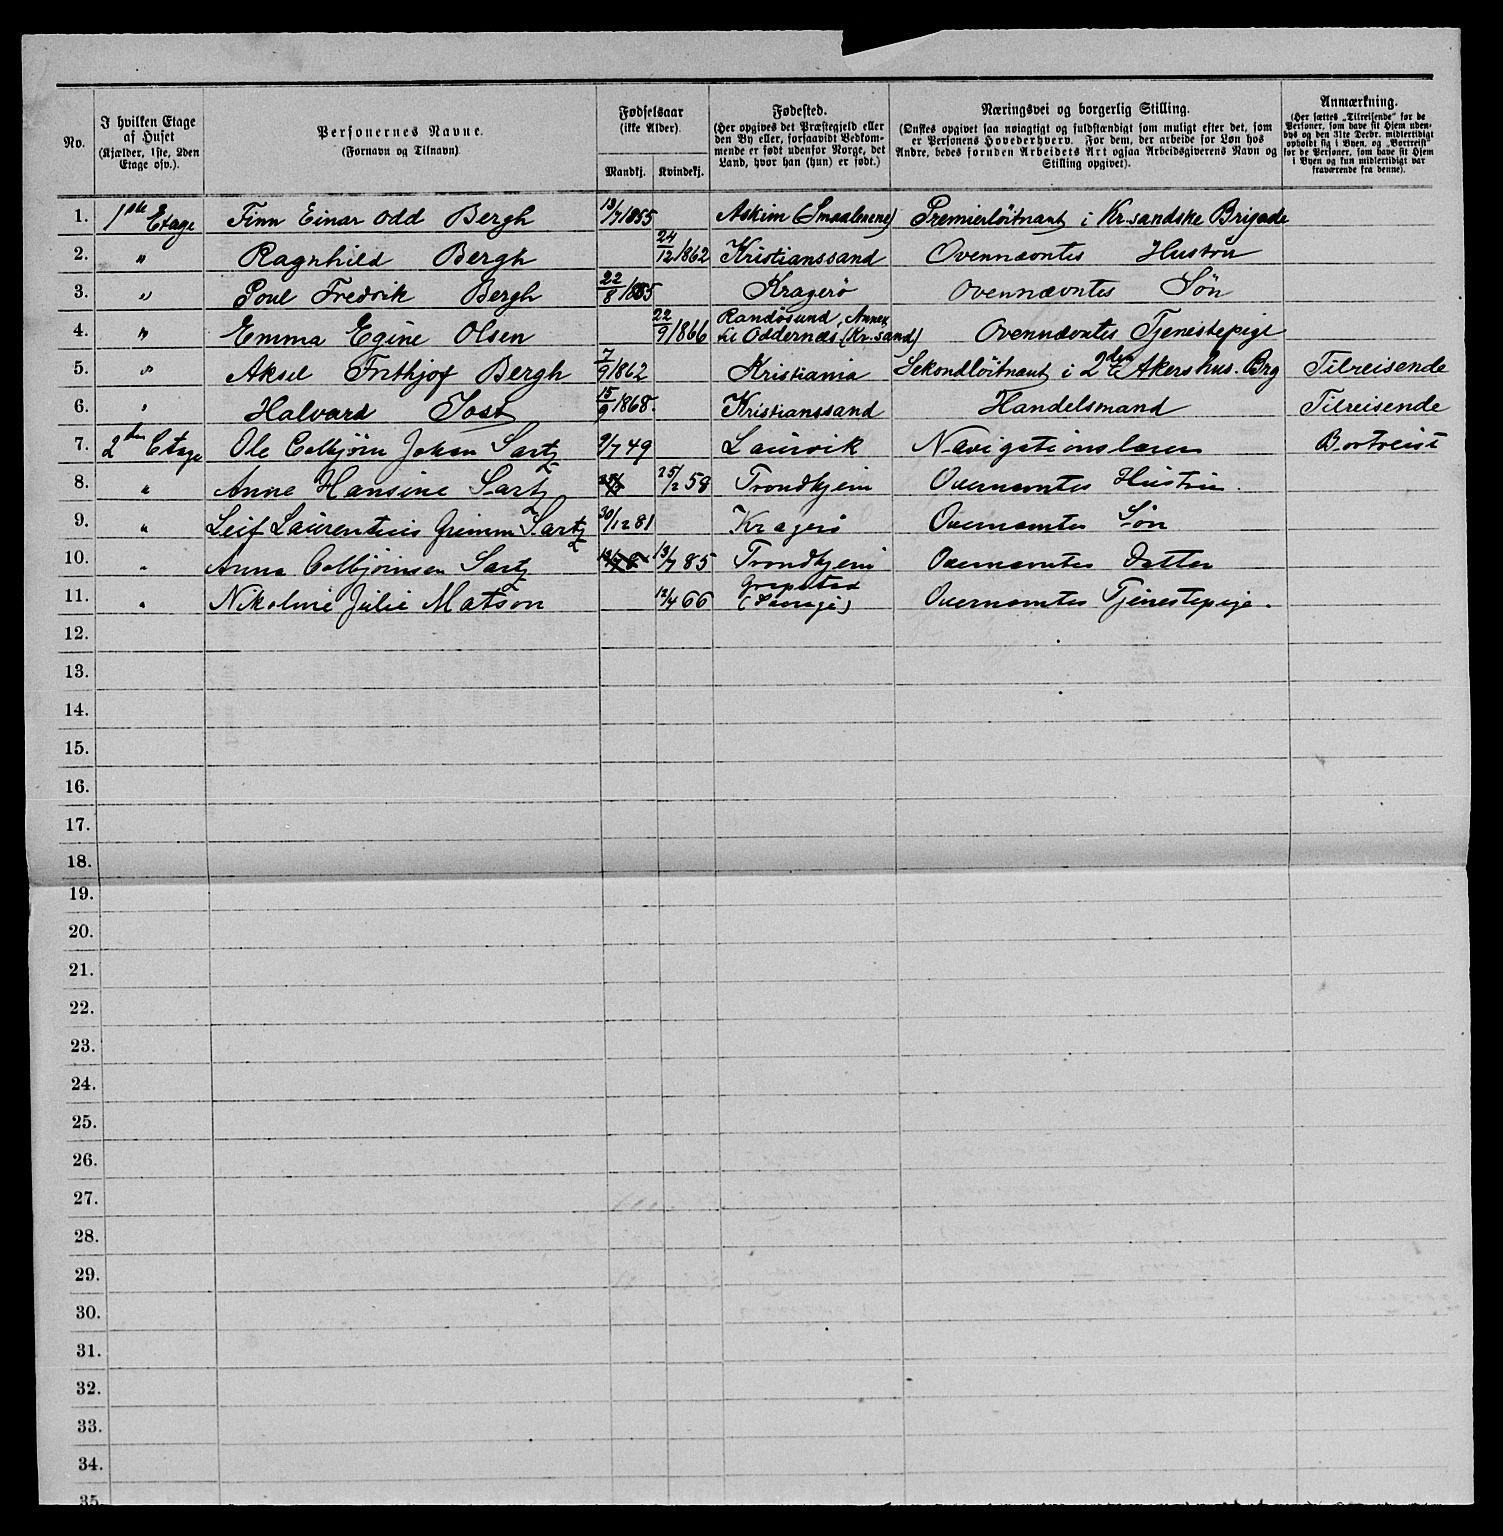 No.
I hvilken Etage
af Huset
(Kjælder, 1ste, 2den
Etage osv.).
Personernes Navne.
(Fornavn og Tilnavn).
Fødselsaar
(ikke Alder).
Mandkj. Kvindekj.
Fødested.
(Her opgives det Præstegjeld eller
den By eller, forsaavidt Vedkom-
mende er født udenfor Norge, det
Land, hvor han (hun) er født.)
Næringsvei og borgerlig Stilling.
(Ønskes opgivet saa nøiagtigt og fuldstændigt som muligt efter det, som
er Personens Hovederhverv. For dem, der arbeide for Løn hos
Andre, bedes foruden Arbeidets Art ogsaa Arbeidsgiverens Navn og
Stilling opgivet).
Anmærkning.
(Her sættes „Tilreisende“ for de
Personer, som have sit Hjem uden-
bys og den 31te Decbr. midlertidigt
opholdt sig i Byen, og „Bortreist“
for de Personer, som have sit Hjem
i Byen og kun midlertidigt var
fraværende fra denne).
1. 1ste Etage Finn Einar Odd Bergh 13/7 1855 Askim (Smaalenene) Premierløitnant i Kr.sandske Brigade
2. " Ragnhild Bergh 24/12 1862 Kristianssand Ovennævntes Hustru
3. " Poul Fredrik Bergh 22/8 1885 Kragerø Ovennævntes Søn
4. " Emma Egine Olsen 22/9 1866 Randøsund, Annex til Oddernæs (Kr.sand) Ovennævntes Tjenestepige
5. " Aksel Frithjof Bergh 7/9 1862 Kristiania Sekondløitnant i 2den Akershus. Brg Tilreisende
6. " Halvard Jost 15/9 1868. Kristianssand Handelsmand Tilreisende
7. 2den Etage Ole Colbjørn Johan Sartz 9/7 49 Laurvik Navigationslærer Bortreist
8. " Anne Hansine Sartz 25/2 58 Trondhjem Ovennævntes Hustru.
9. " Leif Laurentius Grimm Sartz 30/12 81 Kragerø Ovennævntes Søn
10. " Anna Colbjørnsen Sartz 13/7 85 Trondhjem Ovennævntes Datter
11. " Nikoline Julie Matson 12/4 66 Ovennævntes Tjenestepige.
12.
13.
14.
15.
16.
17.
18.
19.
20.
21.
22.
23.
24.
25.
26.
27.
28.
29.
30.
31.
32.
33.
34.
35.